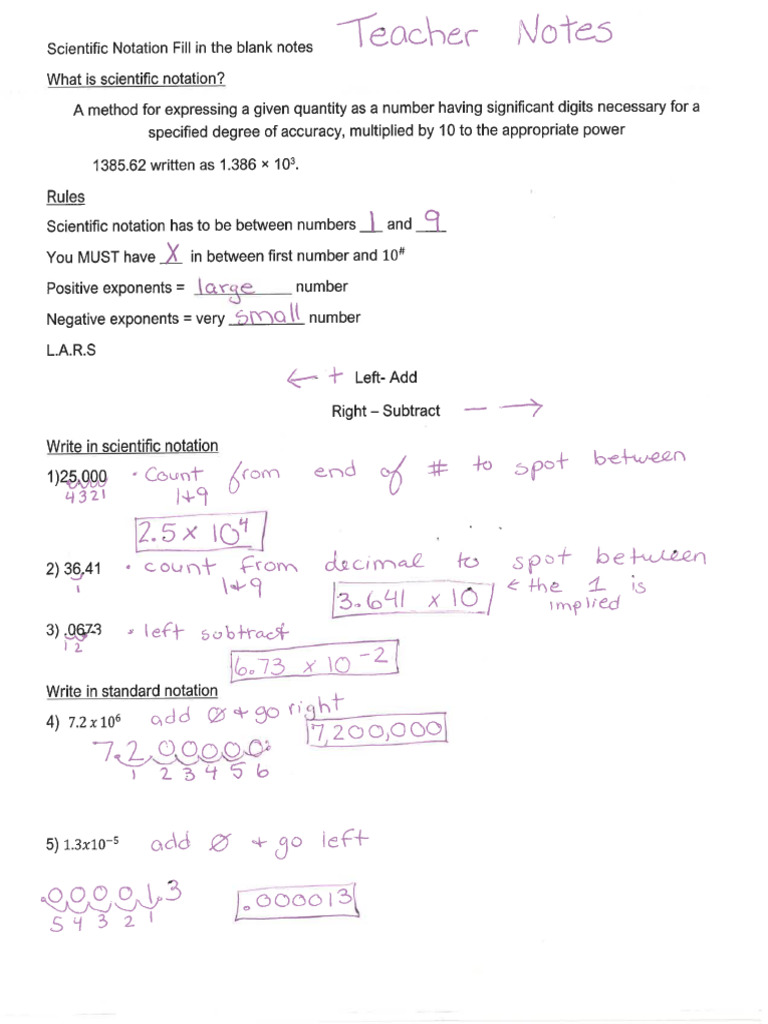 Scientific Notation Fill in the blank notes Teacher Notes
What is scientific notation?
A method for expressing a given quantity as a number having significant digits necessary for a
specified degree of accuracy, multiplied by 10 to the appropriate power
1385.62 written as 1.386 × 10³.
Rules
Scientific notation has to be between numbers 1 and 9
You MUST have X in between first number and 10^#
Positive exponents = large number
Negative exponents = very small number
L.A.R.S
← + Left- Add
Right – Subtract — →
Write in scientific notation
1)25,000 • Count from end of # to spot between
4 3 2 1 1+9
2.5 x 10⁴
2) 36.41 • count from decimal to spot between
1 1+9
3.641 x 10 ← the 1 is
implied
3) .0673 • left subtract
1 2
6.73 x 10⁻²
Write in standard notation
4) 7.2 x 10⁶ add 0 + go right
7,200,000
7.2 00000.
1 2 3 4 5 6
5) 1.3x10⁻⁵ add 0 + go left
.00001.3 .000013
5 4 3 2 1